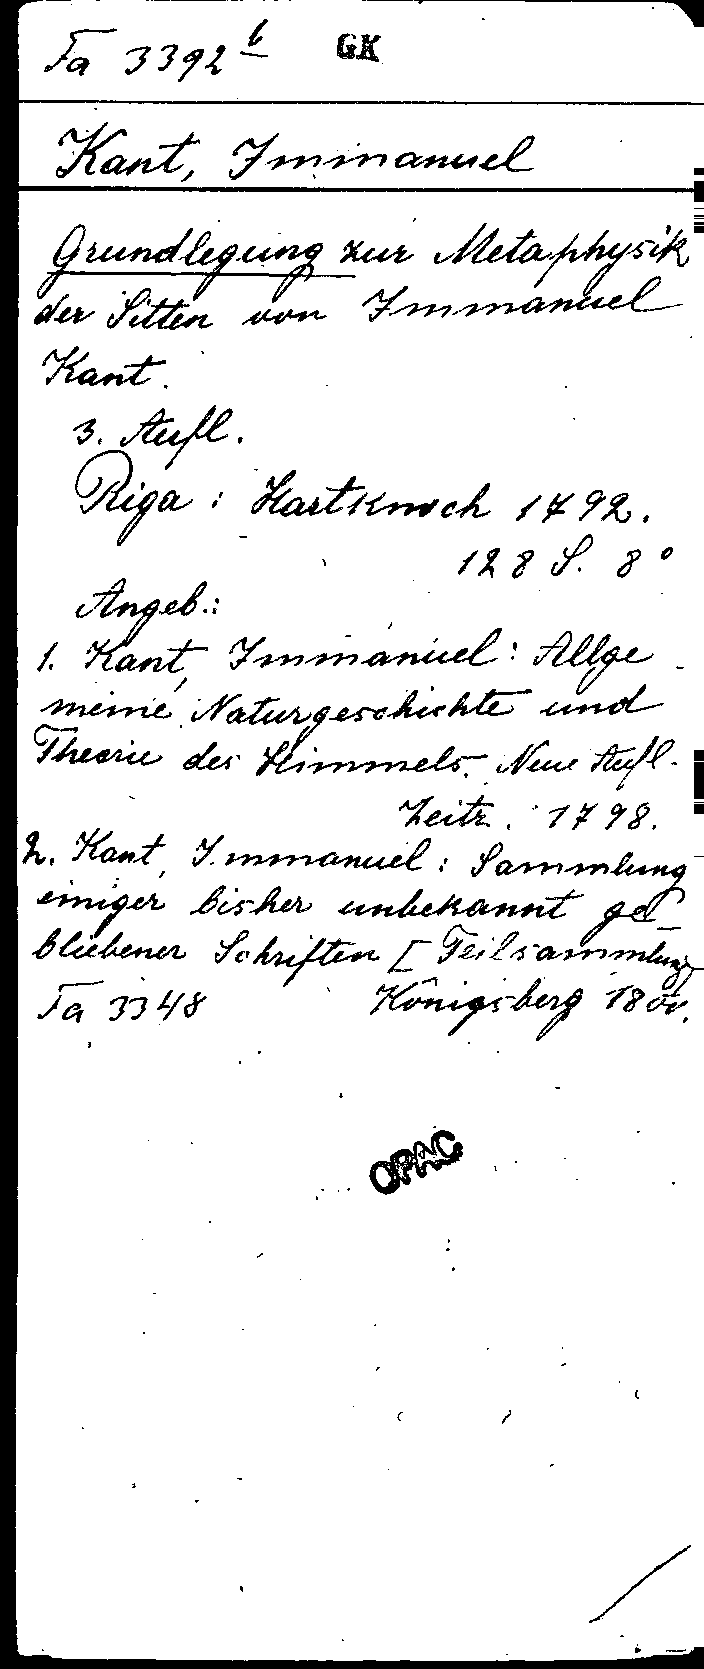 Fa 3392 b GK
Kant, Immanuel
Grundlegung zur Metaphysik
der Sitten von Immanuel
Kant.
3. Aufl.
Riga : Hartknoch 1792.
128 S. 8°
Angeb.:
1. Kant, Immanuel: Allge
meine Naturgeschichte und
Theorie des Himmels. Neue Aufl.
Zeitz. 1798.
2. Kant, Immanuel: Sammlung
einiger bisher unbekannt ge-
bliebener Schriften [Teilsammlung
Fa 3348 Königsberg 1800.
OPAC